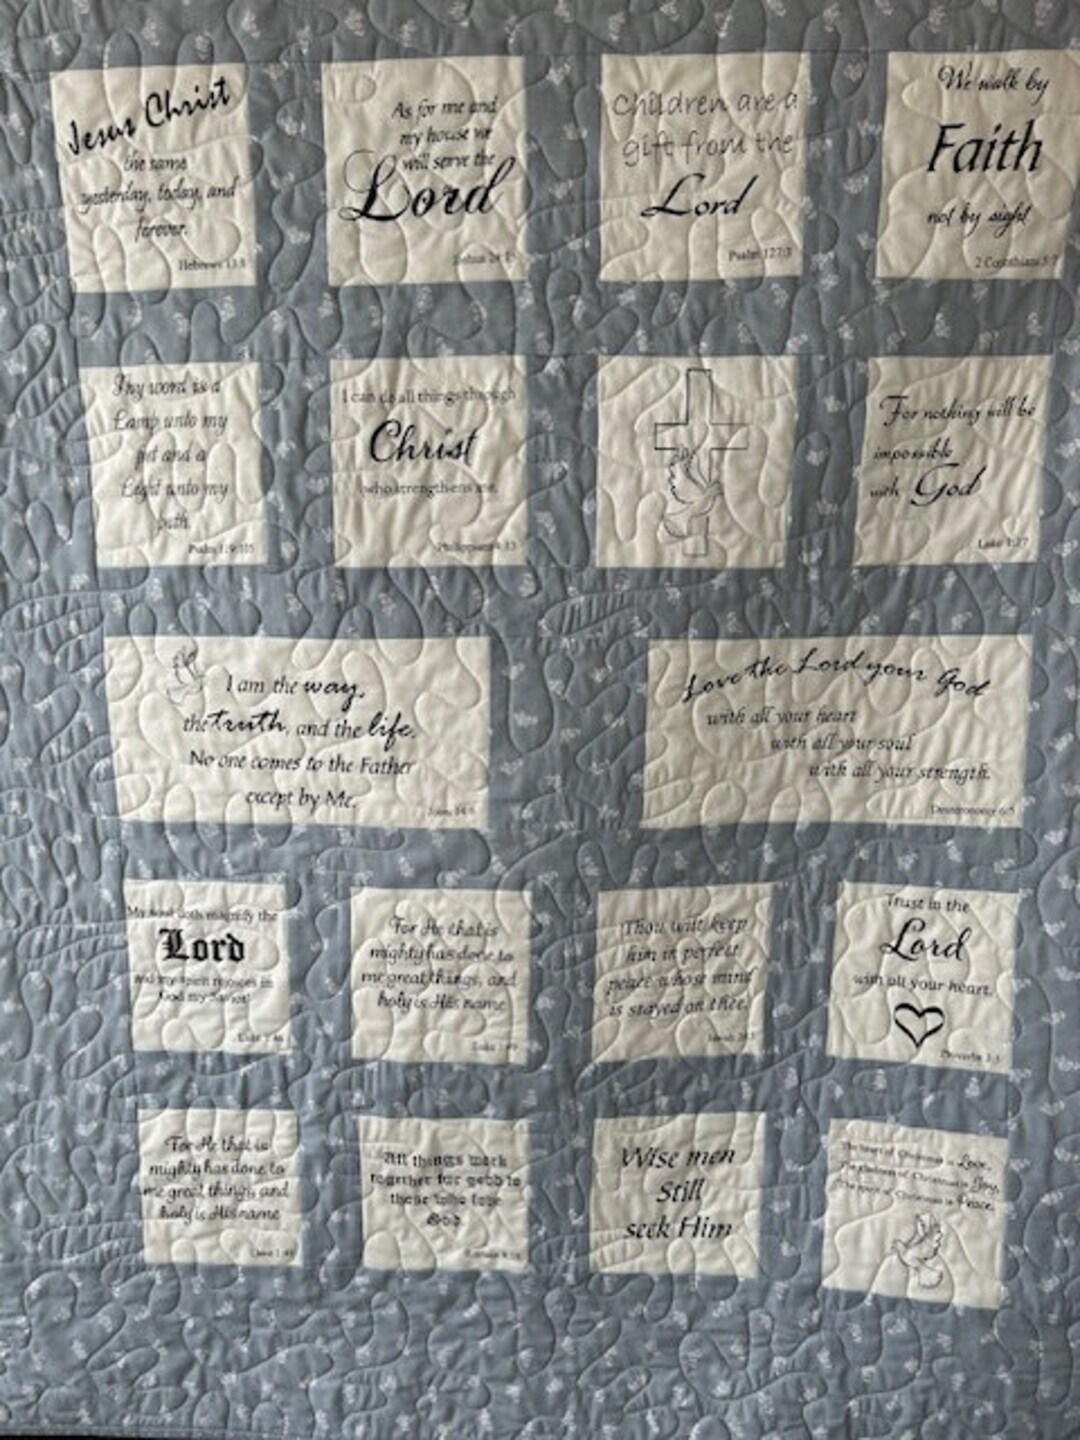 Jesus Christ
the same
yesterday, today, and
forever.
Hebrews 13:8
As for me and
my house we
will serve the
Lord
Joshua 24:15
Children are a
gift from the
Lord
Psalm 127:3
We walk by
Faith
not by sight
2 Corinthians 5:7
Thy word is a
Lamp unto my
feet and a
Light unto my
path.
Psalm 119:105
I can do all things through
Christ
who strengthens me.
Philippians 4:13
For nothing will be
impossible
with God
Luke 1:37
I am the way,
the truth, and the life.
No one comes to the Father
except by Me.
John 14:6
Love the Lord your God
with all your heart
with all your soul
with all your strength.
Deuteronomy 6:5
My soul doth magnify the
Lord
and my spirit rejoices in
God my Savior!
Luke 1:46
For He that is
mighty has done to
me great things, and
holy is His name
Luke 1:49
Thou wilt keep
him in perfect
peace whose mind
is stayed on thee.
Isaiah 26:3
Trust in the
Lord
with all your heart.
Proverbs 3:5
For He that is
mighty has done to
me great things, and
holy is His name
Luke 1:49
All things work
together for good to
those who love
God
Romans 8:28
Wise men
Still
seek Him
The heart of Christmas is Love,
The gladness of Christmas is Joy,
The spirit of Christmas is Peace.